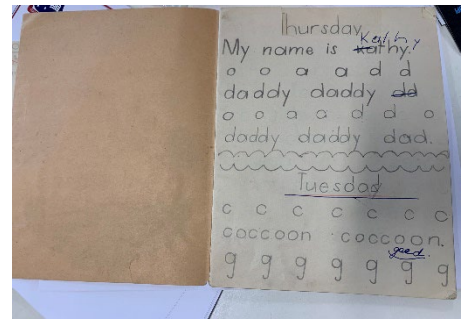 Thursday
Kathy
My name is Kathy.
o o a a d d
daddy daddy dd
o o a a d d o
daddy daddy dad.
Tuesday
c c c c c c c
coccoon coccoon.
good.
g g g g g g g